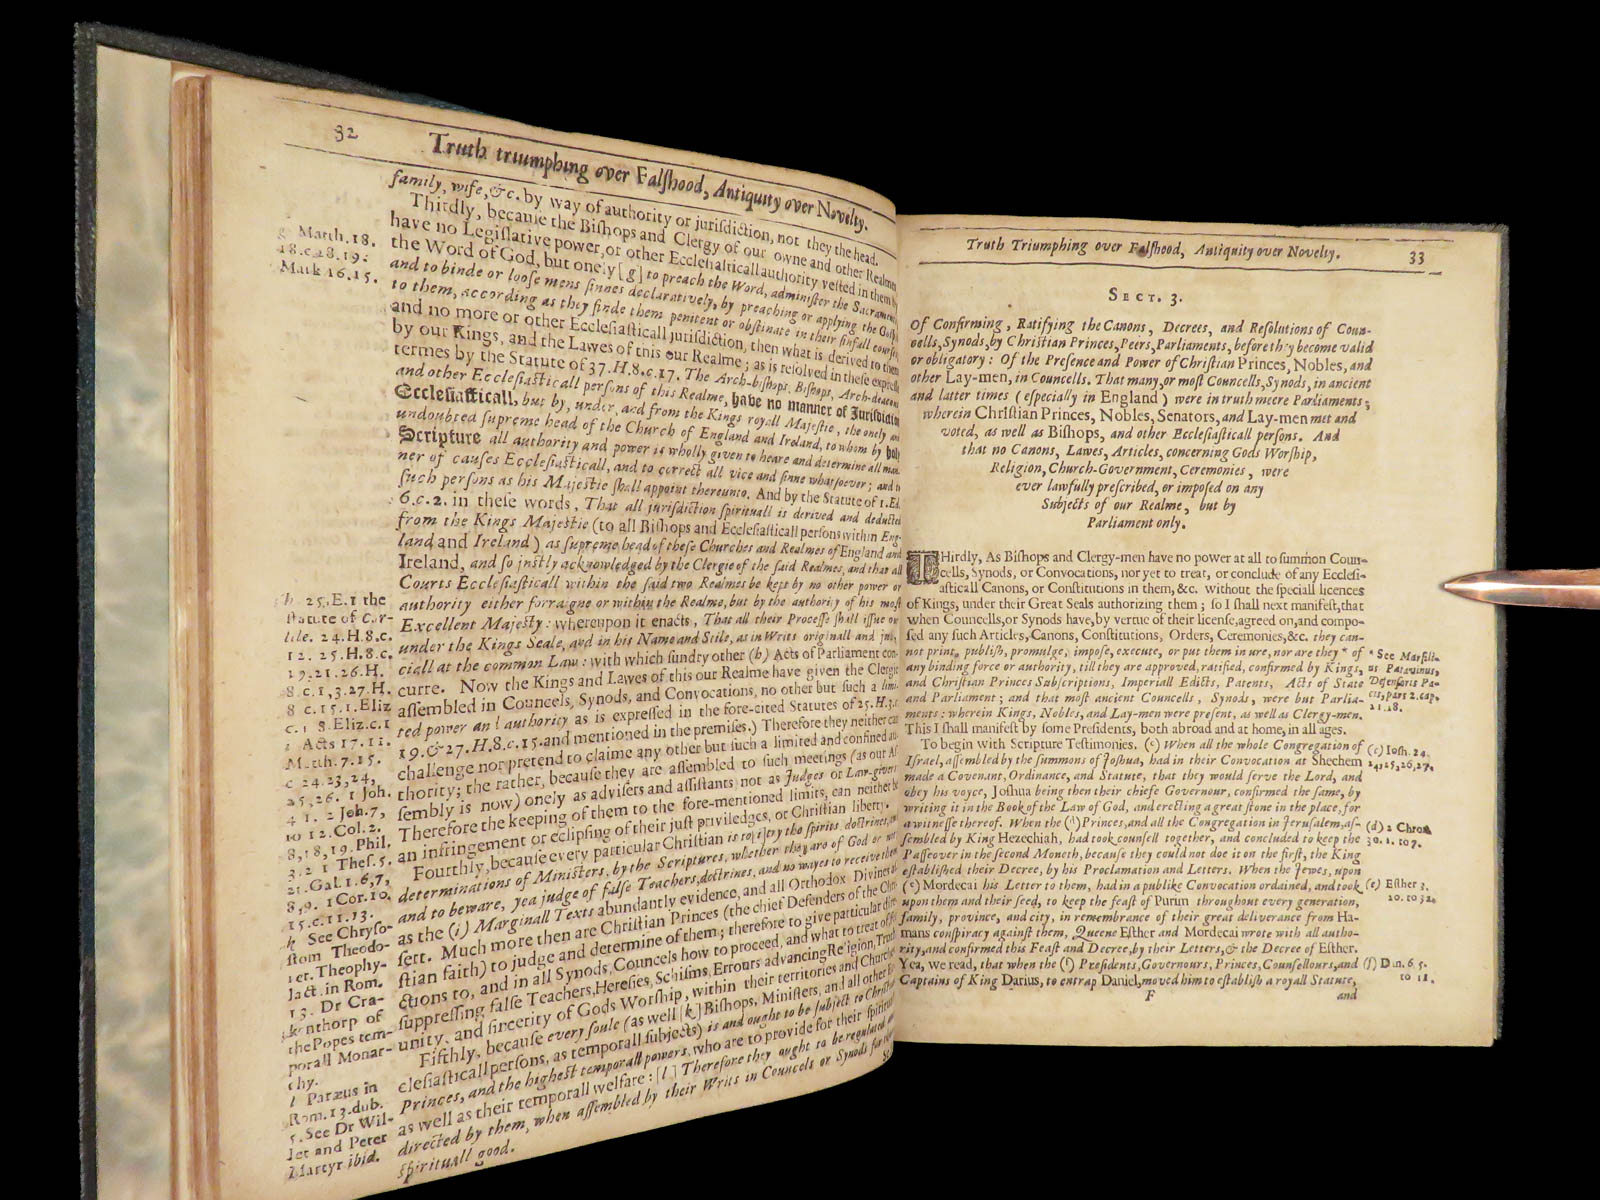 32
Truth triumphing over Falshood, Antiquity over Novelty.
family, wife, &c. by way of authority or jurisdiction, not they the head.
Thirdly, because the Bishops and Clergy of our owne and other Realmes
have no Legislative power, or other Ecclesiasticall authority vested in them by
the Word of God, but onely [g] to preach the Word, administer the Sacraments,
and to binde or loose mens sinnes declaratively, by preaching or applying the
to them, according as they finde them penitent or obstinate in their sinfull courses,
and no more or other Ecclesiasticall jurisdiction, then what is derived to them
by our Kings, and the Lawes of this our Realme; as is resolved in these expresse
termes by the Statute of 37.H.8.c.17. The Arch-bishops, Bishops, Arch-deacons
and other Ecclesiasticall persons of this Realme, have no manner of Jurisdiction
Ecclesiasticall, but by, under, and from the Kings royall Majestie, the onely and
undoubted supreme head of the Church of England and Ireland, to whom by holy
Scripture all authority and power is wholly given to heare and determine all man-
ner of causes Ecclesiasticall, and to correct all vice and sinne whatsoever; and to
such persons as his Majestie shall appoint thereunto. And by the Statute of 1.Ed.
6.c.2. in these words, That all jurisdiction spirituall is derived and deducted
from the Kings Majestie (to all Bishops and Ecclesiasticall persons within Eng-
land and Ireland) as supreme head of these Churches and Realmes of England and
Ireland, and so justly acknowledged by the Clergie of the said Realmes, and that all
Courts Ecclesiasticall within the said two Realmes be kept by no other power or
authority either forraigne or within the Realme, but by the authority of his most
Excellent Majesty: whereupon it enacts, That all their Processe shall issue out
under the Kings Seale, and in his Name and Stile, as in Writs originall and judi-
ciall at the common Law: with which sundry other (h) Acts of Parliament con-
curre. Now the Kings and Lawes of this our Realme have given the Clergie
assembled in Councels, Synods, and Convocations, no other but such a limi-
ted power and authority as is expressed in the fore-cited Statutes of 25.H.8.c.
19.&27.H.8.c.15.and mentioned in the premises.) Therefore they neither can
challenge nor pretend to claime any other but such a limited and confined au-
thority; the rather, because they are assembled to such meetings (as our As-
sembly is now) onely as advisers and assistants not as Judges or Law-givers
Therefore the keeping of them to the fore-mentioned limits, can neither be
an infringement or eclipsing of their just priviledges, or Christian liberty.
Fourthly, because every particular Christian is to try the spirits, doctrines,
determinations of Ministers, by the Scriptures, whether they are of God or not
and to beware, yea judge of false Teachers, doctrines, and no wayes to receive them
as the (i) Marginall Texts abundantly evidence, and all Orthodox Divines
sert. Much more then are Christian Princes (the chief Defenders of the Chri-
stian faith) to judge and determine of them; therefore to give particular dire-
ctions to, and in all Synods, Councels how to proceed, and what to treat of
suppressing false Teachers, Heresies, Schisms, Errours advancing Religion, Truth
unity, and sincerity of Gods Worship, within their territories and Churches
Fifthly, because every soule (as well [k] Bishops, Ministers, and all other Ec-
clesiasticall persons, as temporall subjects) is and ought to be subject to Christian
Princes, and the highest temporall powers, who are to provide for their spirituall
as well as their temporall welfare: [l] Therefore they ought to be regulated and
directed by them, when assembled by their Writs in Councels or Synods for
spirituall good.
g Matth.18.
18.c.28.19.
Mark 16.15.
h 25.E.1 the
statute of Car-
lile. 24.H.8.c.
12. 25.H.8.c.
19.21.26.H.
8.c.1,3.27.H.
8 c.15.1.Eliz
c.1 8.Eliz.c.1
i Acts 17.11.
Matth.7.15.
c 24.23,24,
25,26. 1 Joh.
4 1. 2 Joh.7,
10 12.Col.2.
8,18,19.Phil.
3.2 1 Thes.5.
21.Gal.1.6,7,
8,9. 1 Cor.10.
15.c.11.13.
k See Chryso-
stom Theodo-
ret. Theophy-
lact. in Rom.
13. Dr Cra-
kenthorp of
the Popes tem-
porall Monar-
chy.
l Paræus in
Rom.13.dub.
5. See Dr Wil-
let and Peter
Martyr ibid.
Truth Triumphing over Falshood, Antiquity over Novelty.
33
SECT. 3.
Of Confirming, Ratifying the Canons, Decrees, and Resolutions of Coun-
cells, Synods, by Christian Princes, Peers, Parliaments, before they become valid
or obligatory: Of the Presence and Power of Christian Princes, Nobles, and
other Lay-men, in Councells. That many, or most Councells, Synods, in ancient
and latter times (especially in England) were in truth meere Parliaments;
wherein Christian Princes, Nobles, Senators, and Lay-men met and
voted, as well as Bishops, and other Ecclesiasticall persons. And
that no Canons, Lawes, Articles, concerning Gods Worship,
Religion, Church-Government, Ceremonies, were
ever lawfully prescribed, or imposed on any
Subjects of our Realme, but by
Parliament only.
THirdly, As Bishops and Clergy-men have no power at all to summon Coun-
cells, Synods, or Convocations, nor yet to treat, or conclude of any Ecclesi-
asticall Canons, or Constitutions in them, &c. without the speciall licences
of Kings, under their Great Seals authorizing them; so I shall next manifest, that
when Councells, or Synods have, by vertue of their license, agreed on, and compo-
sed any such Articles, Canons, Constitutions, Orders, Ceremonies, &c. they can-
not print, publish, promulge, impose, execute, or put them in ure, nor are they * of
any binding force or authority, till they are approved, ratified, confirmed by Kings,
and Christian Princes Subscriptions, Imperiall Edicts, Patents, Acts of State
and Parliament; and that most ancient Councells, Synods, were but Parlia-
ments: wherein Kings, Nobles, and Lay-men were present, as well as Clergy-men.
This I shall manifest by some Presidents, both abroad and at home, in all ages.
To begin with Scripture Testimonies. (c) When all the whole Congregation of
Israel, assembled by the summons of Joshua, had in their Convocation at Shechem
made a Covenant, Ordinance, and Statute, that they would serve the Lord, and
obey his voyce, Joshua being then their chiefe Governour, confirmed the same, by
writing it in the Book of the Law of God, and erecting a great stone in the place, for
a witnesse thereof. When the (d) Princes, and all the Congregation in Jerusalem, as-
sembled by King Hezechiah, had took counsell together, and concluded to keep the
Passeover in the second Moneth, because they could not doe it on the first, the King
established their Decree, by his Proclamation and Letters. When the Jewes, upon
(e) Mordecai his Letter to them, had in a publike Convocation ordained, and took
upon them and their seed, to keep the feast of Purim throughout every generation,
family, province, and city, in remembrance of their great deliverance from Ha-
mans conspiracy against them, Queene Esther and Mordecai wrote with all autho-
rity, and confirmed this Feast and Decree, by their Letters, & the Decree of Esther.
Yea, we read, that when the (f) Presidents, Governours, Princes, Counsellours, and
Captains of King Darius, to entrap Daniel, moved him to establish a royall Statute,
F
and
* See Marsili-
us Patavinus,
Defensoris Pa-
cis, part 2. cap.
21.28.
(c) Josh. 24.
24,25,26,27.
(d) 2 Chron.
30. 1. to 7.
(e) Esther 3.
20. to 32.
(f) Dan. 6 5.
to 11.